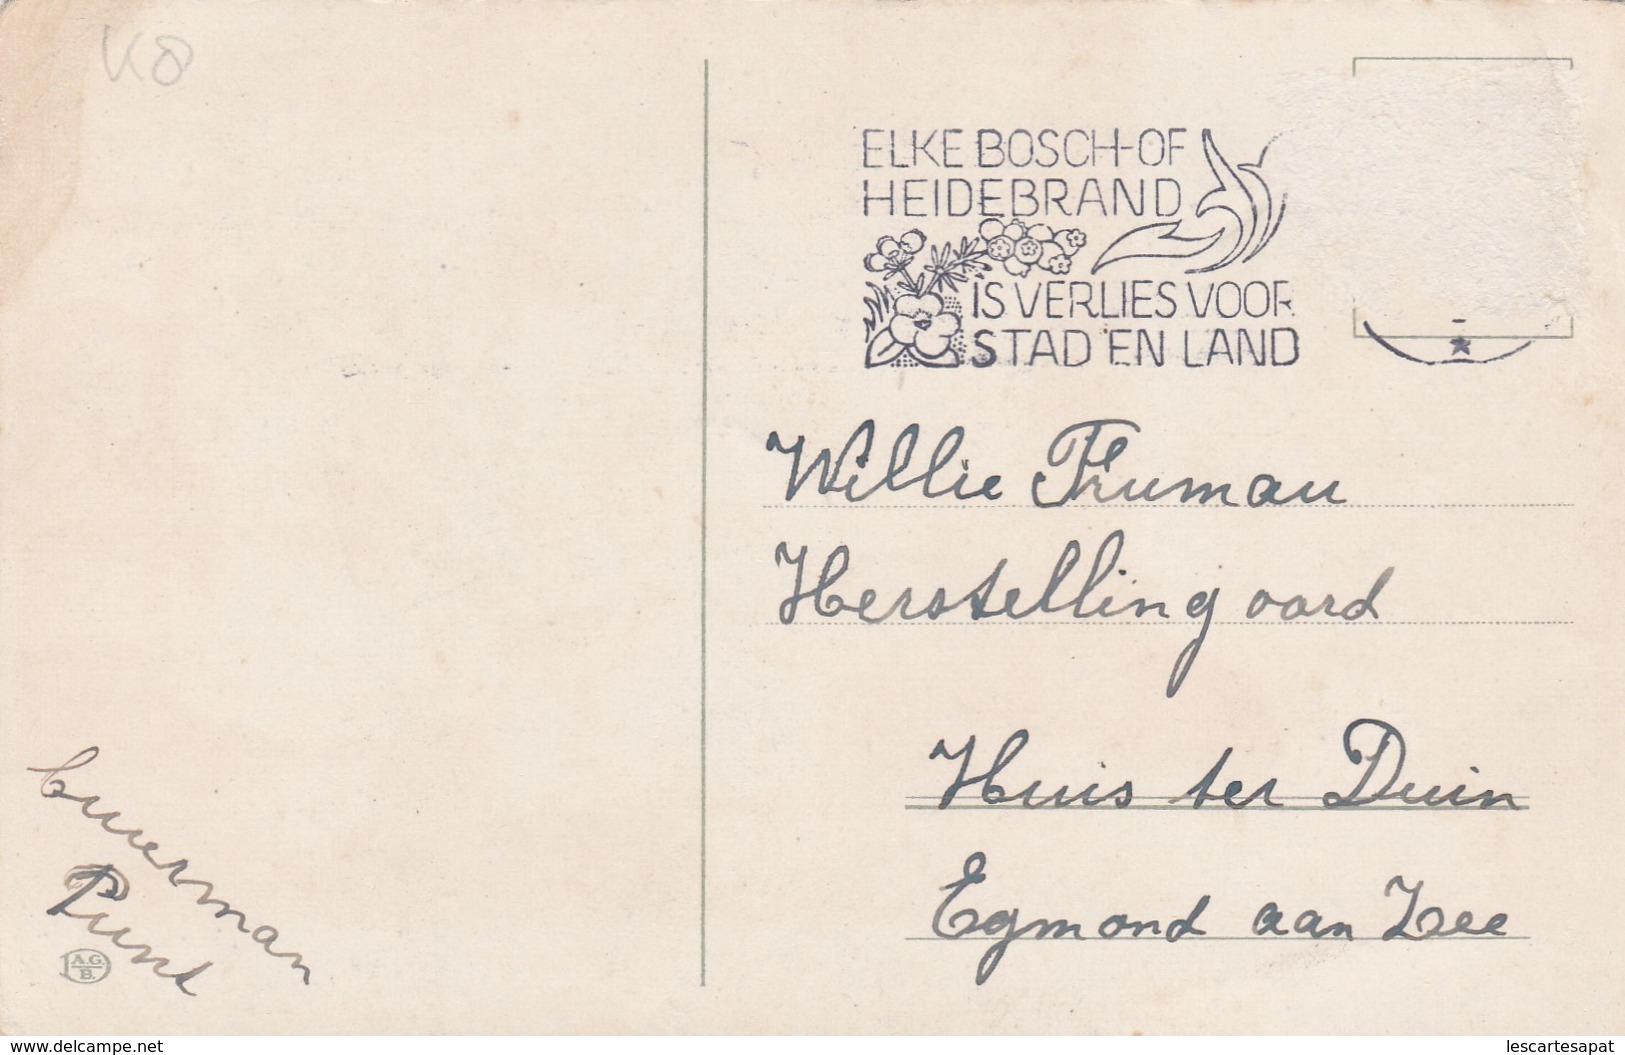 K8
ELKE BOSCH-OF
HEIDEBRAND
IS VERLIES VOOR
STAD EN LAND
Willie Truman
Herstellingoord
Huis ter Duin
Egmond aan Zee
Buurman
Punt
A.G.
B.
www.delcampe.net
lescartesapat